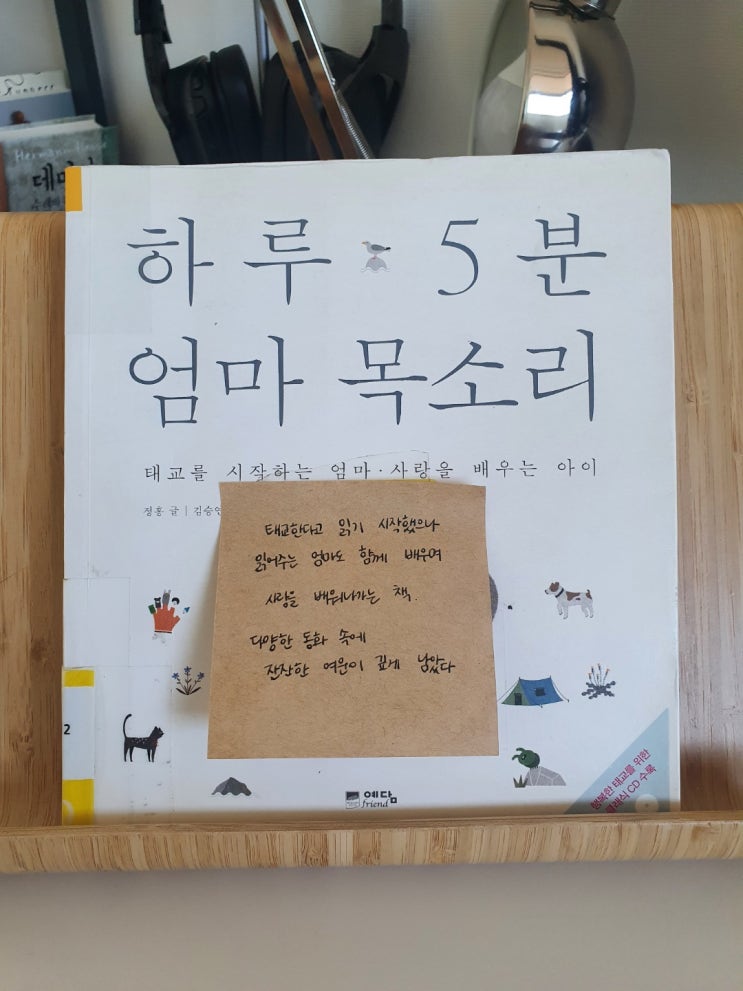 데미
하루 5분
엄마 목소리
태교를 시작하는 엄마·사랑을 배우는 아이
정홍 글 | 김승연
태교한다고 읽기 시작했으나
읽어주는 엄마도 함께 배우며
사랑을 배워나가는 책.
다양한 동화 속에
잔잔한 여운이 깊게 남았다
2
행복한 태교를 위한
클래식 CD 수록
예담
friend